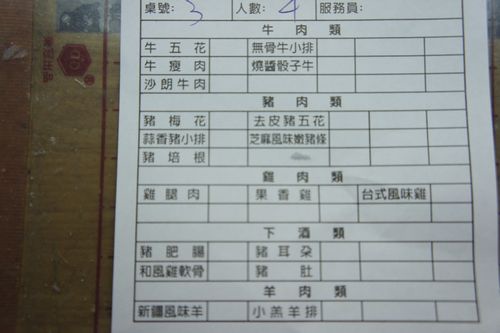 桌號: 3 人數: 4 服務員:
牛肉類
牛五花 無骨牛小排
牛瘦肉 燒醬骰子牛
沙朗牛肉
豬肉類
豬梅花 去皮豬五花
蒜香豬小排 芝麻風味嫩豬條
豬培根
雞肉類
雞腿肉 果香雞 台式風味雞
下酒類
豬肥腸 豬耳朵
和風雞軟骨 豬肚
羊肉類
新疆風味羊 小羔羊排